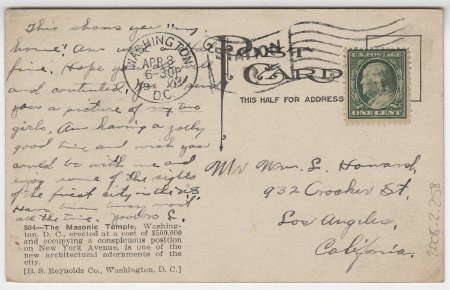 This shows you "my
home". Am well and
fine. Hope you
and contented. send
you a picture of my two
girls. Am having a jolly
good time and wish you
could be with me and
enjoy some of the sights
of the first city in the U.S.
Have been busy
all the time. Yours L.
804—The Masonic Temple, Washing-
ton, D. C., erected at a cost of $500,000
and occupying a conspicuous position
on New York Avenue, is one of the
new architectural adornments of the
city.
[B. S. Reynolds Co., Washington, D. C.]
WASHINGTON
APR 8
6-30P
D.C.
POST
CARD
THIS HALF FOR ADDRESS
ONE CENT
Mr Wm. L. Howard,
932 Crocker St.
Los Angeles,
California.
2008.2.258